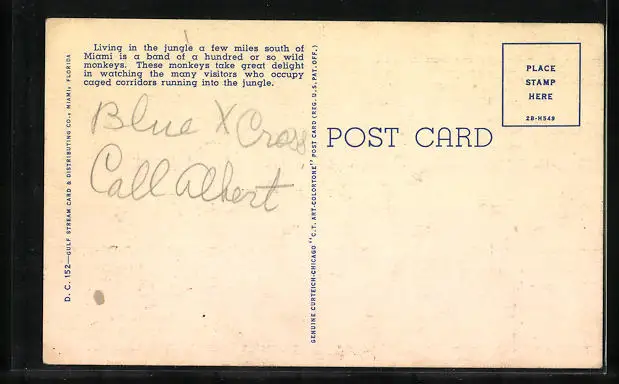 Living in the jungle a few miles south of
Miami is a band of a hundred or so wild
monkeys. These monkeys take great delight
in watching the many visitors who occupy
caged corridors running into the jungle.
Blue X Cross
Call Albert
D. C. 152—GULF STREAM CARD & DISTRIBUTING CO., MIAMI, FLORIDA
GENUINE CURTEICH-CHICAGO "C.T. ART-COLORTONE" POST CARD (REG. U. S. PAT. OFF.)
POST CARD
PLACE
STAMP
HERE
2B-H549